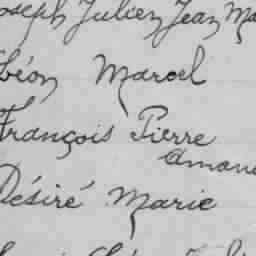 Joseph Julien Jean Ma
Léon Marcel
François Pierre
Amand
Désiré Marie